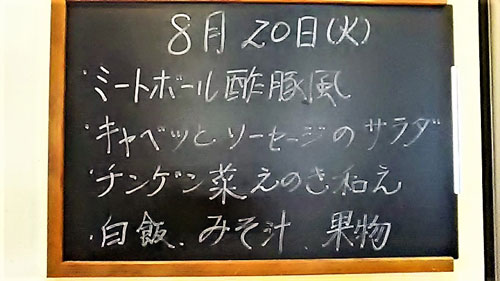 8月20日(火)
・ミートボール酢豚風
・キャベツとソーセージのサラダ
・チンゲン菜えのき和え
・白飯、みそ汁、果物